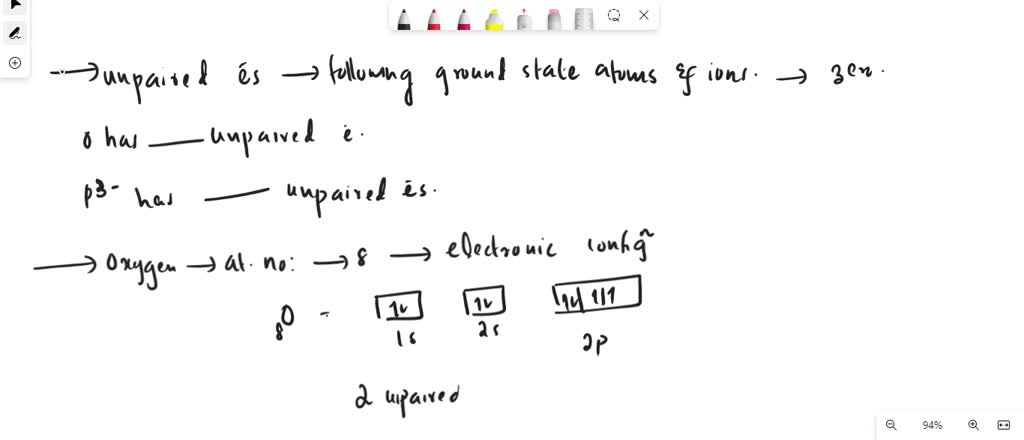 → unpaired és → following ground state atoms & ions. → zen.
O has ___ unpaired é.
p3- has ___ unpaired és.
→ Oxygen → at. no: → 8 → electronic config^n
8O = 1s 2s 2p
2 unpaired
94%